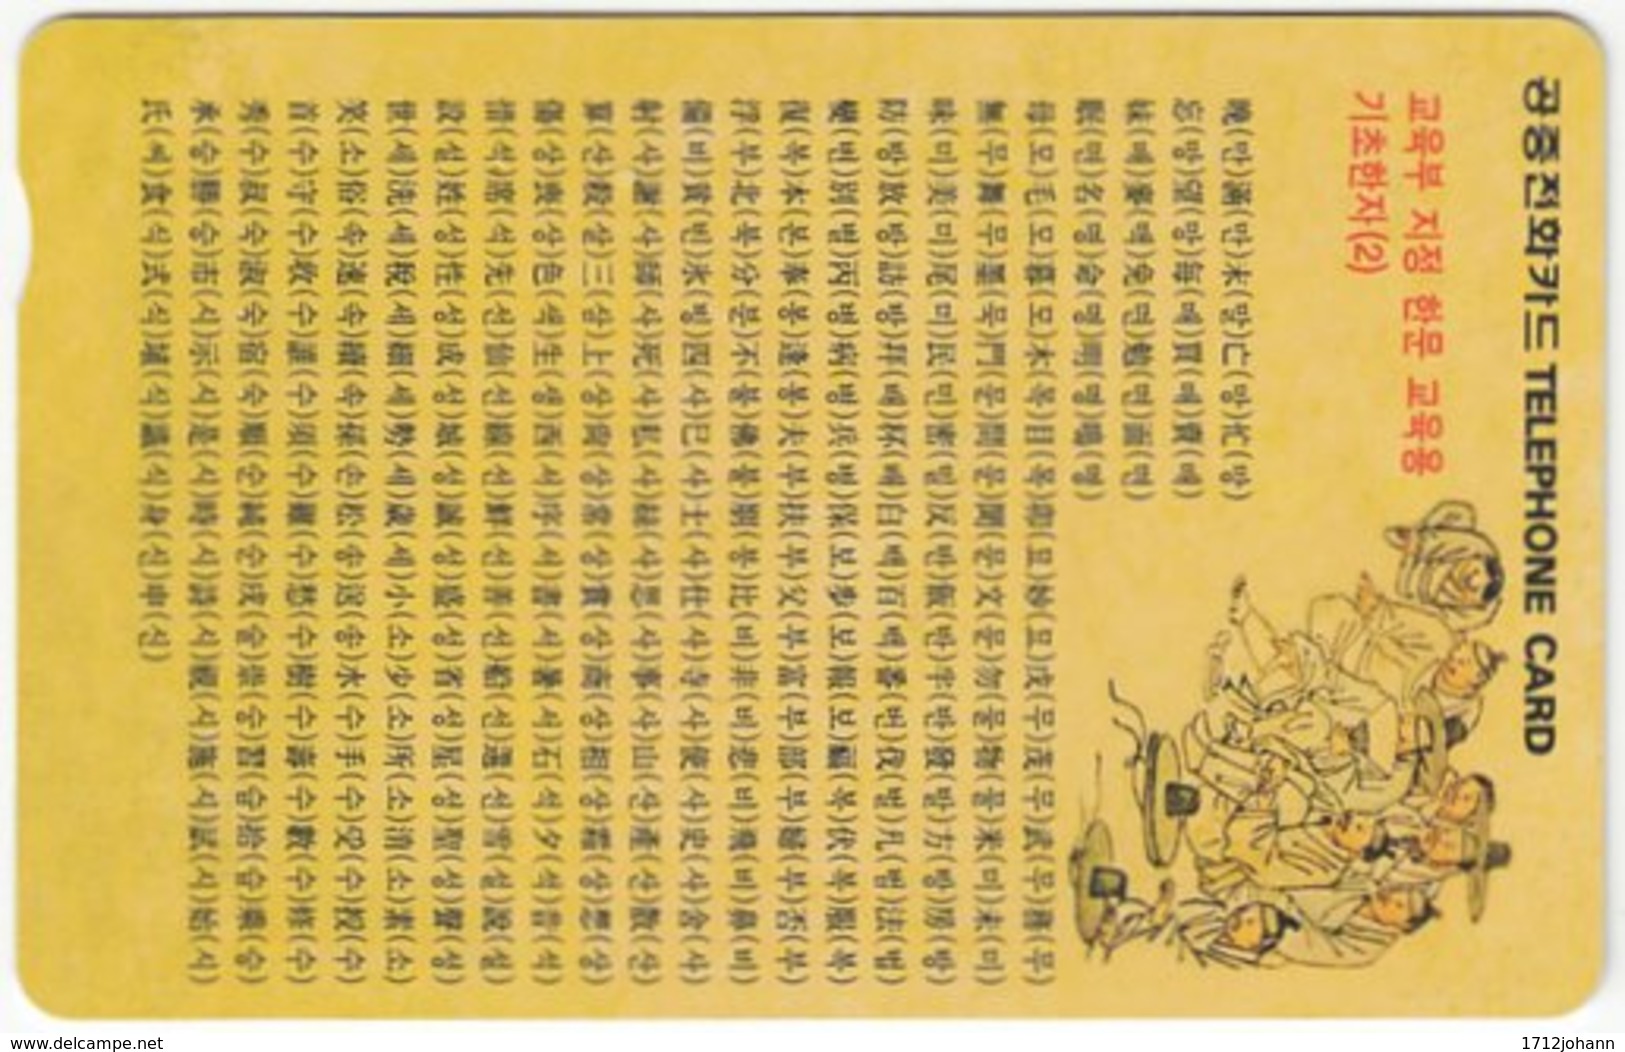 공중전화카드 TELEPHONE CARD
교육부 지정 한문 교육용
기초한자(2)
晩(만)滿(만)末(말)亡(망)忙(망)
忘(망)望(망)每(매)買(매)賣(매)
妹(매)麥(맥)免(면)勉(면)面(면)
眠(면)名(명)命(명)明(명)鳴(명)
母(모)毛(모)暮(모)木(목)目(목)卯(묘)妙(묘)戊(무)茂(무)武(무)務(무)
無(무)舞(무)墨(묵)門(문)問(문)聞(문)文(문)勿(물)物(물)米(미)未(미)
味(미)美(미)尾(미)民(민)密(밀)反(반)飯(반)半(반)發(발)方(방)房(방)
防(방)放(방)訪(방)拜(배)杯(배)白(백)百(백)番(번)伐(벌)凡(범)法(법)
變(변)別(별)丙(병)病(병)兵(병)保(보)步(보)報(보)福(복)伏(복)服(복)
復(복)本(본)奉(봉)逢(봉)夫(부)扶(부)父(부)富(부)部(부)婦(부)否(부)
浮(부)北(북)分(분)不(불)佛(불)朋(붕)比(비)非(비)悲(비)飛(비)鼻(비)
備(비)貧(빈)氷(빙)四(사)巳(사)士(사)仕(사)寺(사)使(사)史(사)舍(사)
射(사)謝(사)師(사)死(사)私(사)絲(사)思(사)事(사)山(산)産(산)散(산)
算(산)殺(살)三(삼)上(상)尙(상)常(상)賞(상)商(상)相(상)霜(상)想(상)
傷(상)喪(상)色(색)生(생)西(서)序(서)書(서)暑(서)石(석)夕(석)昔(석)
惜(석)席(석)先(선)仙(선)線(선)鮮(선)善(선)船(선)選(선)雪(설)說(설)
設(설)姓(성)性(성)成(성)城(성)誠(성)盛(성)省(성)星(성)聖(성)聲(성)
世(세)洗(세)稅(세)細(세)勢(세)歲(세)小(소)少(소)所(소)消(소)素(소)
笑(소)俗(속)速(속)續(속)孫(손)松(송)送(송)水(수)手(수)受(수)授(수)
首(수)守(수)收(수)誰(수)須(수)雖(수)愁(수)樹(수)壽(수)數(수)修(수)
秀(수)叔(숙)淑(숙)宿(숙)順(순)純(순)戌(술)崇(숭)習(습)拾(습)乘(승)
承(승)勝(승)市(시)示(시)是(시)時(시)詩(시)視(시)施(시)試(시)始(시)
氏(씨)食(식)式(식)植(식)識(식)身(신)申(신)
www.delcampe.net
1712johann